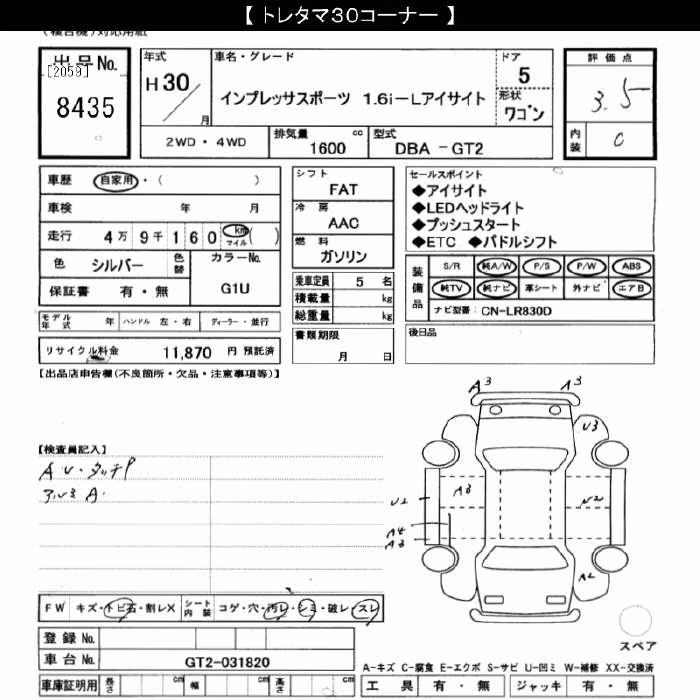 【 トレタマ30コーナー 】
(複合機)対応用紙
出品No.
[2059]
8435
年式
H 30 / 月
車名・グレード
インプレッサスポーツ 1.6i-Lアイサイト
ドア
5
形状
ワゴン
評価点
3.5
内装
C
2WD・4WD
排気量
1600 cc
型式
DBA - GT2
車歴 自家用・( )
車検 年 月
走行 4万9千160 km マイル ( )
色 シルバー 色替
カラーNo.
G1U
保証書 有・無
モデル年式 年 ハンドル 左・右 ディーラー・並行
リサイクル料金 11,870 円 預託済
シフト
FAT
冷房
AAC
燃料
ガソリン
乗車定員 5 名
積載量 kg
総重量 kg
書類期限
月 日
セールスポイント
◆アイサイト
◆LEDヘッドライト
◆プッシュスタート
◆ETC ◆パドルシフト
装備品
S/R 純A/W P/S P/W ABS
純TV 純ナビ 革シート 外ナビ エアB
ナビ型番: CN-LR830D
後日品
【出品店申告欄(不良箇所・欠品・注意事項等)】
【検査員記入】
A U・タッチP
アルミ A
A3 A3
U3
A3
U2
U2
A4
A3
A2
FW キズ・トビ石・割レX シート内装 コゲ・穴・汚レ・シミ・破レ・スレ
登録No.
車台No. GT2-031820
車庫証明用 長さ cm 幅 cm 高さ cm
スペア
A-キズ C-腐食 E-エクボ S-サビ U-凹ミ W-補修 XX-交換済
工具 有・無 ジャッキ 有・無